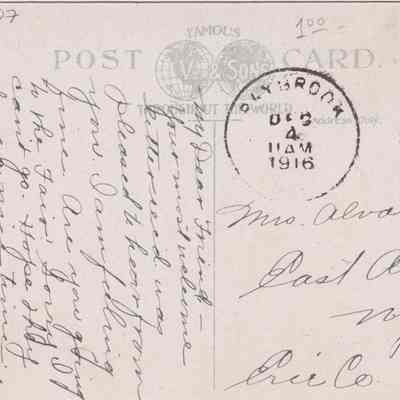 1.00
FAMOUS
POST CARD.
V & SONS
THROUGHOUT THE WORLD
Address Only.
BROOK
DEC
4
11 AM
1916
My Dear Friend -
Your most welcome
letter rec'd. was
pleased to hear from
you. I am feeling
fine. Are you going
to the Fair. Sorry I
can't go. Hope
time
Mrs. Alva
East A
Erie Co.